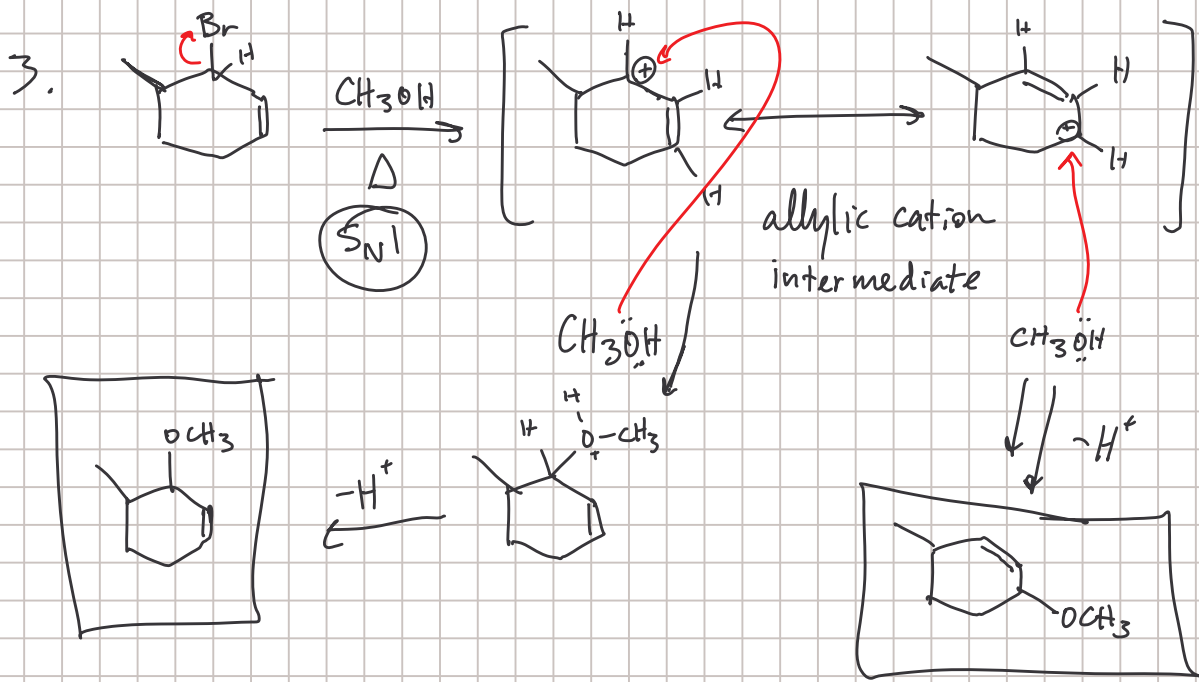 3.
Br
H
CH3OH
Δ
SN1
H
⊕
H
H
H
H
⊕
H
allylic cation
intermediate
CH3ÖH
CH3ÖH
H
H
O-CH3
+
-H+
-H+
OCH3
OCH3